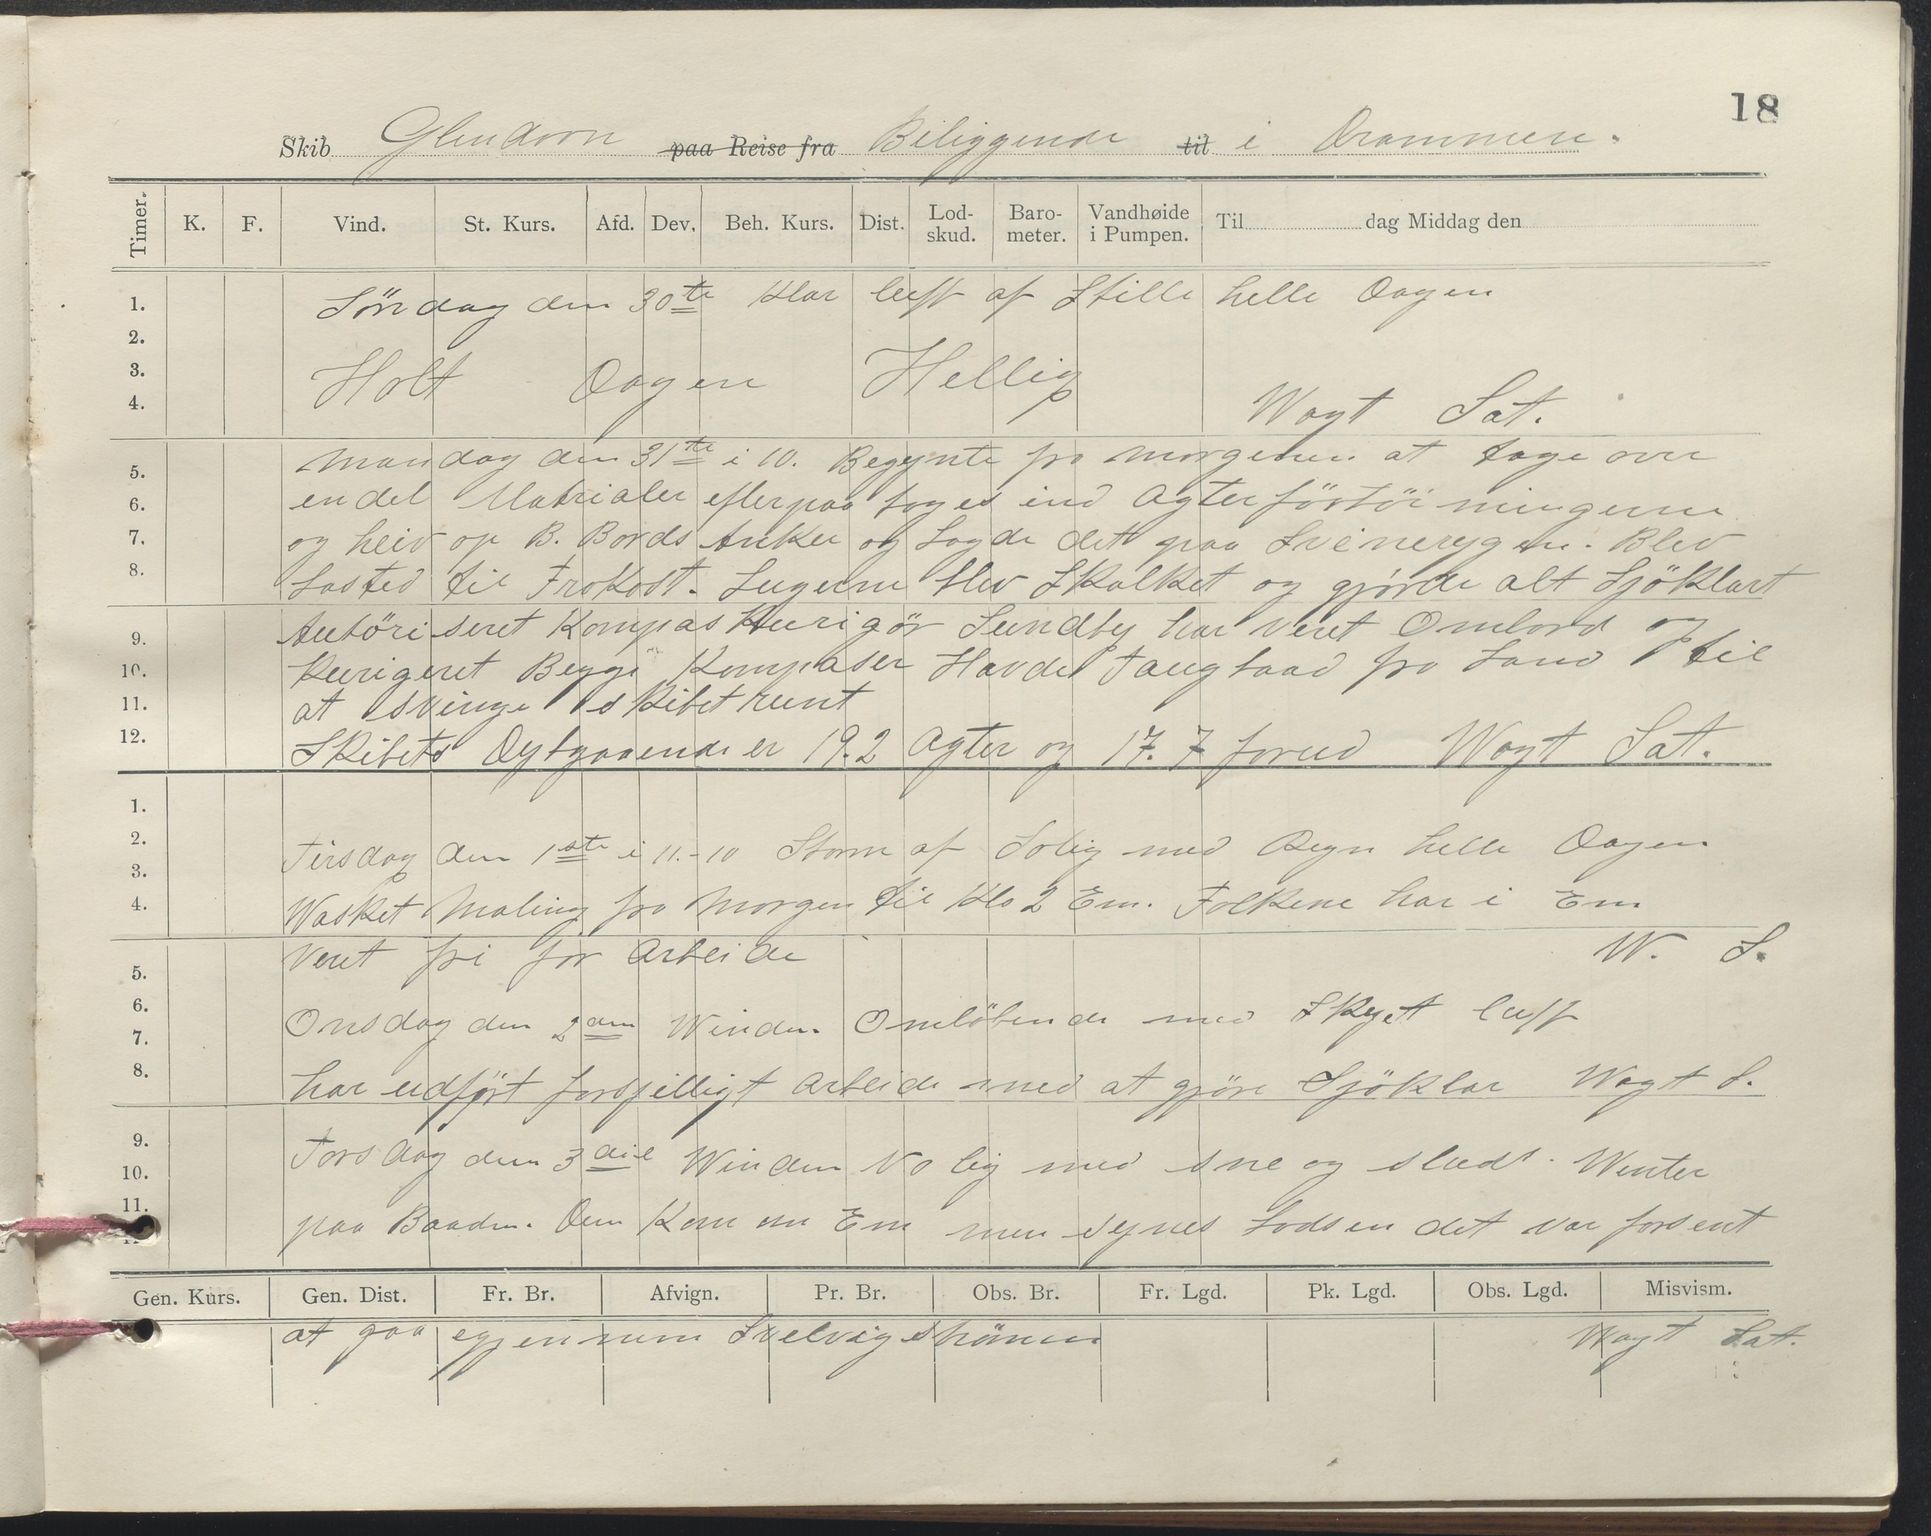 18
Skib Glendoon paa Reise fra Beliggende til i Drammen.
Timer. K. F. Vind. St. Kurs. Afd. Dev. Beh. Kurs. Dist. Lod-skud. Baro-meter. Vandhøide i Pumpen. Til dag Middag den
1.
2.
3.
4.
Søndag den 30te Klar luft af Stille helle Dagen
Holt Dagen Hellig
Wagt Sat.
5.
6.
7.
8.
Mandag den 31te i 10. Begynte fra morgenen at tage over
en del Matrialer efterpaa toges ind Agterförtöiningerne
og heiv op B. Bords Anker og Lagde det paa Svinerygen. Blev
Lasted til Frokost. Lugerne blev Skalket og gjörde alt Sjöklart
9.
10.
11.
12.
Autöriseret Kompas Kurigör Sundby har veret Ombord og
Kurigeret Begge Kompaser Havde Taugbaad fra Land til
at svinge skibet runt
Skibets Dybgaaende er 19.2 Agter og 17.7 forud Wagt Sat.
1.
2.
3.
4.
Tirsdag den 1ste i 11.-10 Storm af Solig med Regn helle Dagen
Wasket Maling fra Morgen til Klo 2 Em. Folkene har i Em
5.
6.
7.
8.
veret fri for Arbeide W. S.
Onsdag den 2den Winden Omlöbende med Skyet luft
har udfört forskjelligt Arbeide med at gjöre Sjöklar Wagt S.
9.
10.
11.
Torsdag den 3die Winden No lig med sne og slud. Wenter
paa Baaden. Den Kom om Em men synes Lodsen det var forsent
Gen. Kurs. Gen. Dist. Fr. Br. Afvign. Pr. Br. Obs. Br. Fr. Lgd. Pk. Lgd. Obs. Lgd. Misvism.
at gaa egjennem Svelvigströmen Wagt Sat.